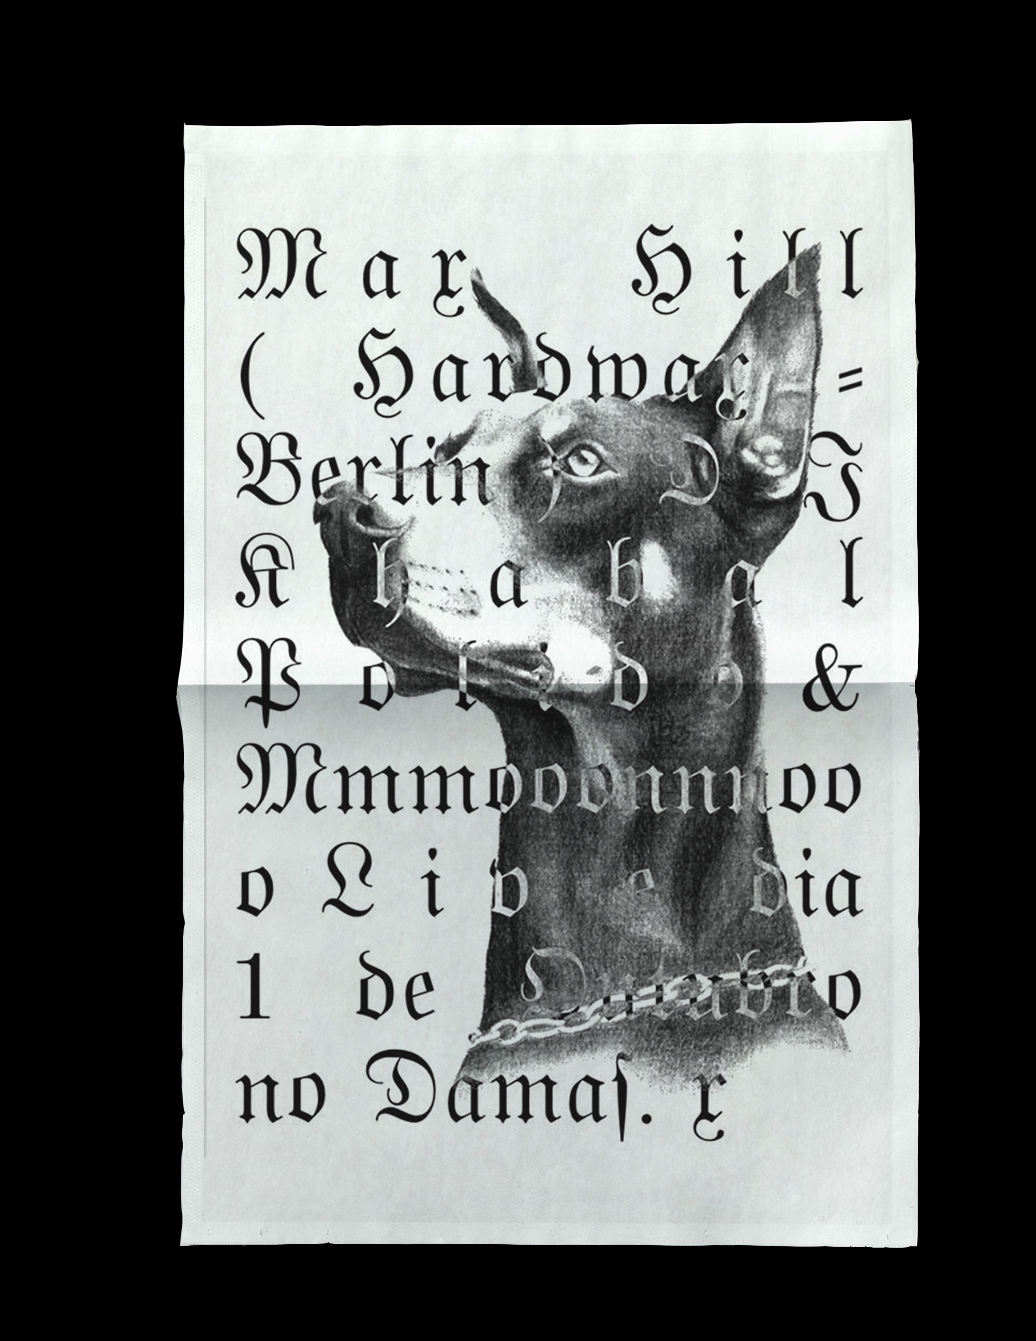 Max Hill
( Hardwax =
Berlin ) D J
K h a b a l
P o l i d o &
Mmmooonnnoo
o L i v e dia
1 de Outubro
no Damaſ. x